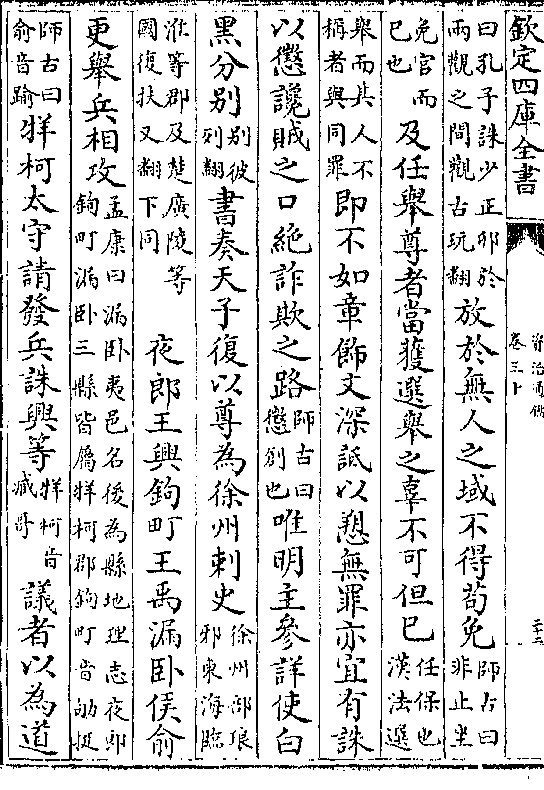 欽定四庫全書
資治通鑑
卷三十
二十二
曰孔子誅少正卯於
兩觀之間觀古玩翻
放於無人之域不得苟免
師古曰
非止坐
免官而
已也
及任舉尊者當獲選舉之辜不可但已
任保也
漢法選
舉而其人不
稱者與同罪
即不如章飾文深詆以愬無罪亦宜有誅
以懲讒賊之口絶詐欺之路
師古曰
懲創也
唯明主參詳使白
黒分别
别彼
列翻
書奏天子復以尊為徐州刺史
徐州部琅
邪東海臨
淮等郡及楚廣陵等
國復扶又翻下同
夜郎王興鉤町王禹漏卧侯俞
更舉兵相攻
孟康曰漏卧夷邑名後為縣地理志夜郎
鉤町漏卧三縣皆屬牂柯郡鉤町音劬挺
師古曰
俞音踰
牂柯太守請發兵誅興等
牂柯音
臧哥
議者以為道